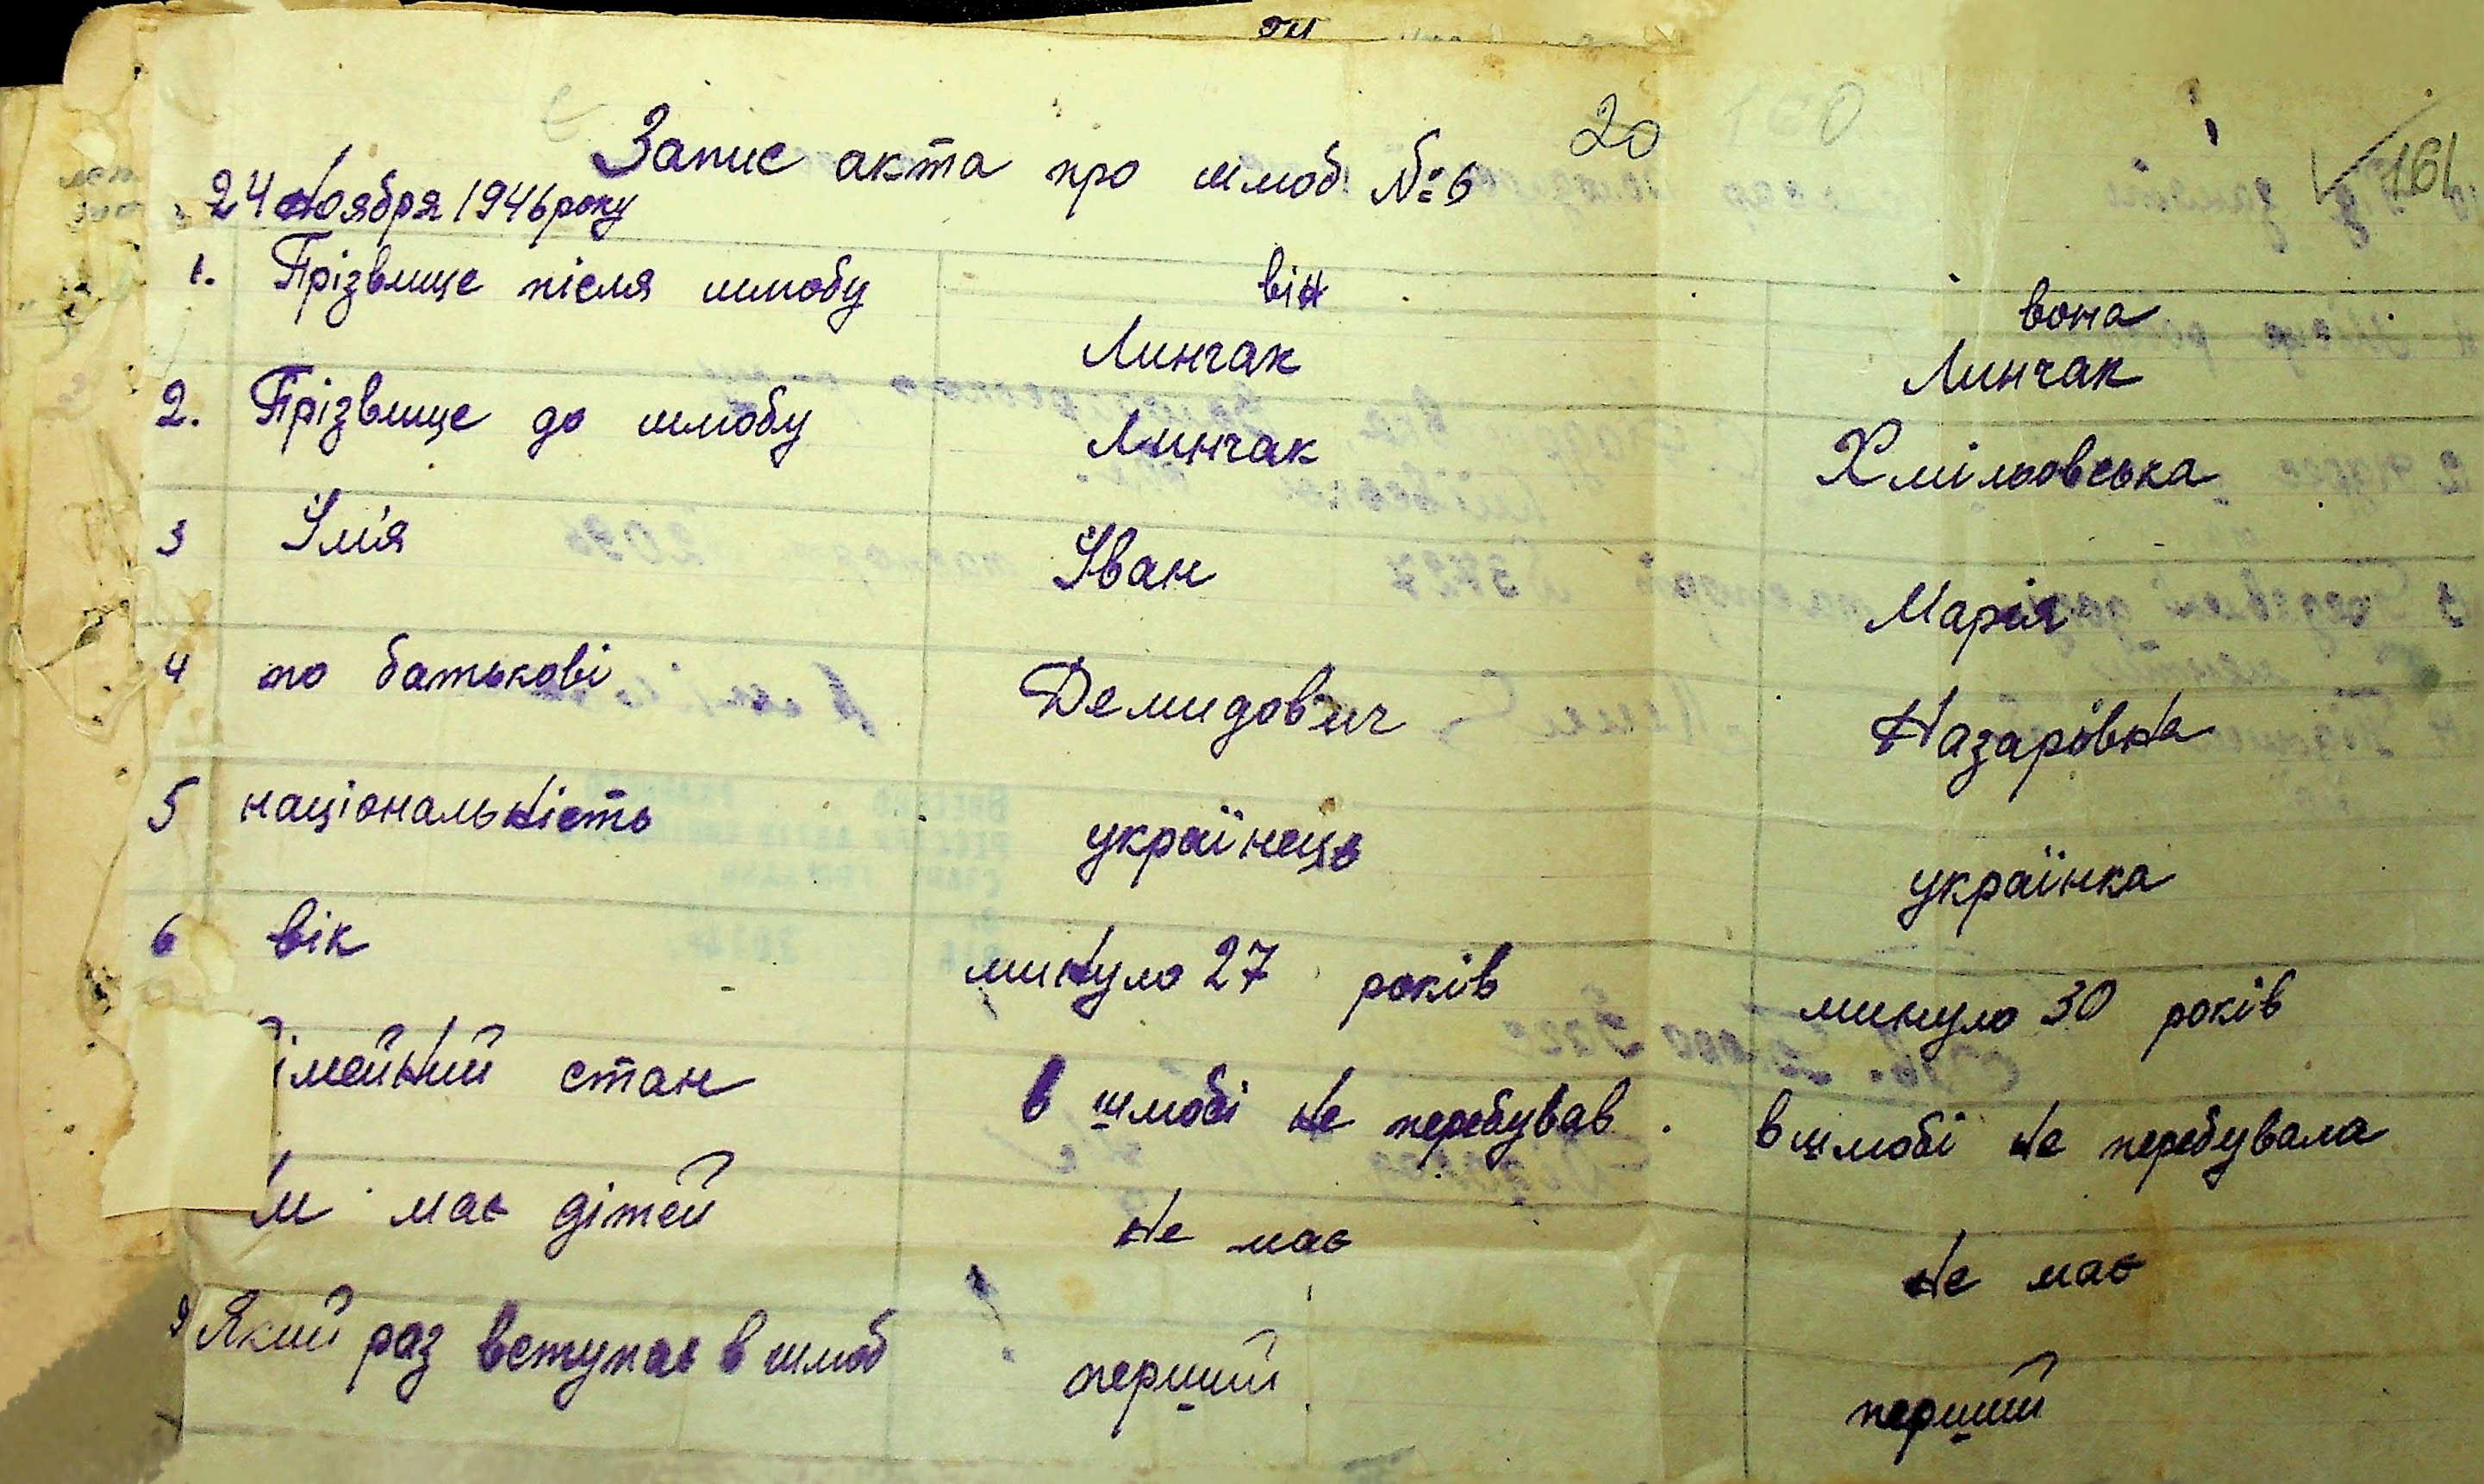 20
164
Запис акта про шлюб №6
24 Ноября 1946 року
він вона
1. Прізвище після шлюбу Линчак Линчак
2. Прізвище до шлюбу Линчак Хмільовська
3 Ім'я Іван Марія
4 по батькові Демидович Назарівна
5 національність українець українка
6 вік минуло 27 років минуло 30 років
імейний стан в шлюбі не перебував в шлюбі не перебувала
має дітей не має не має
9 Який раз вступає в шлюб перший перший